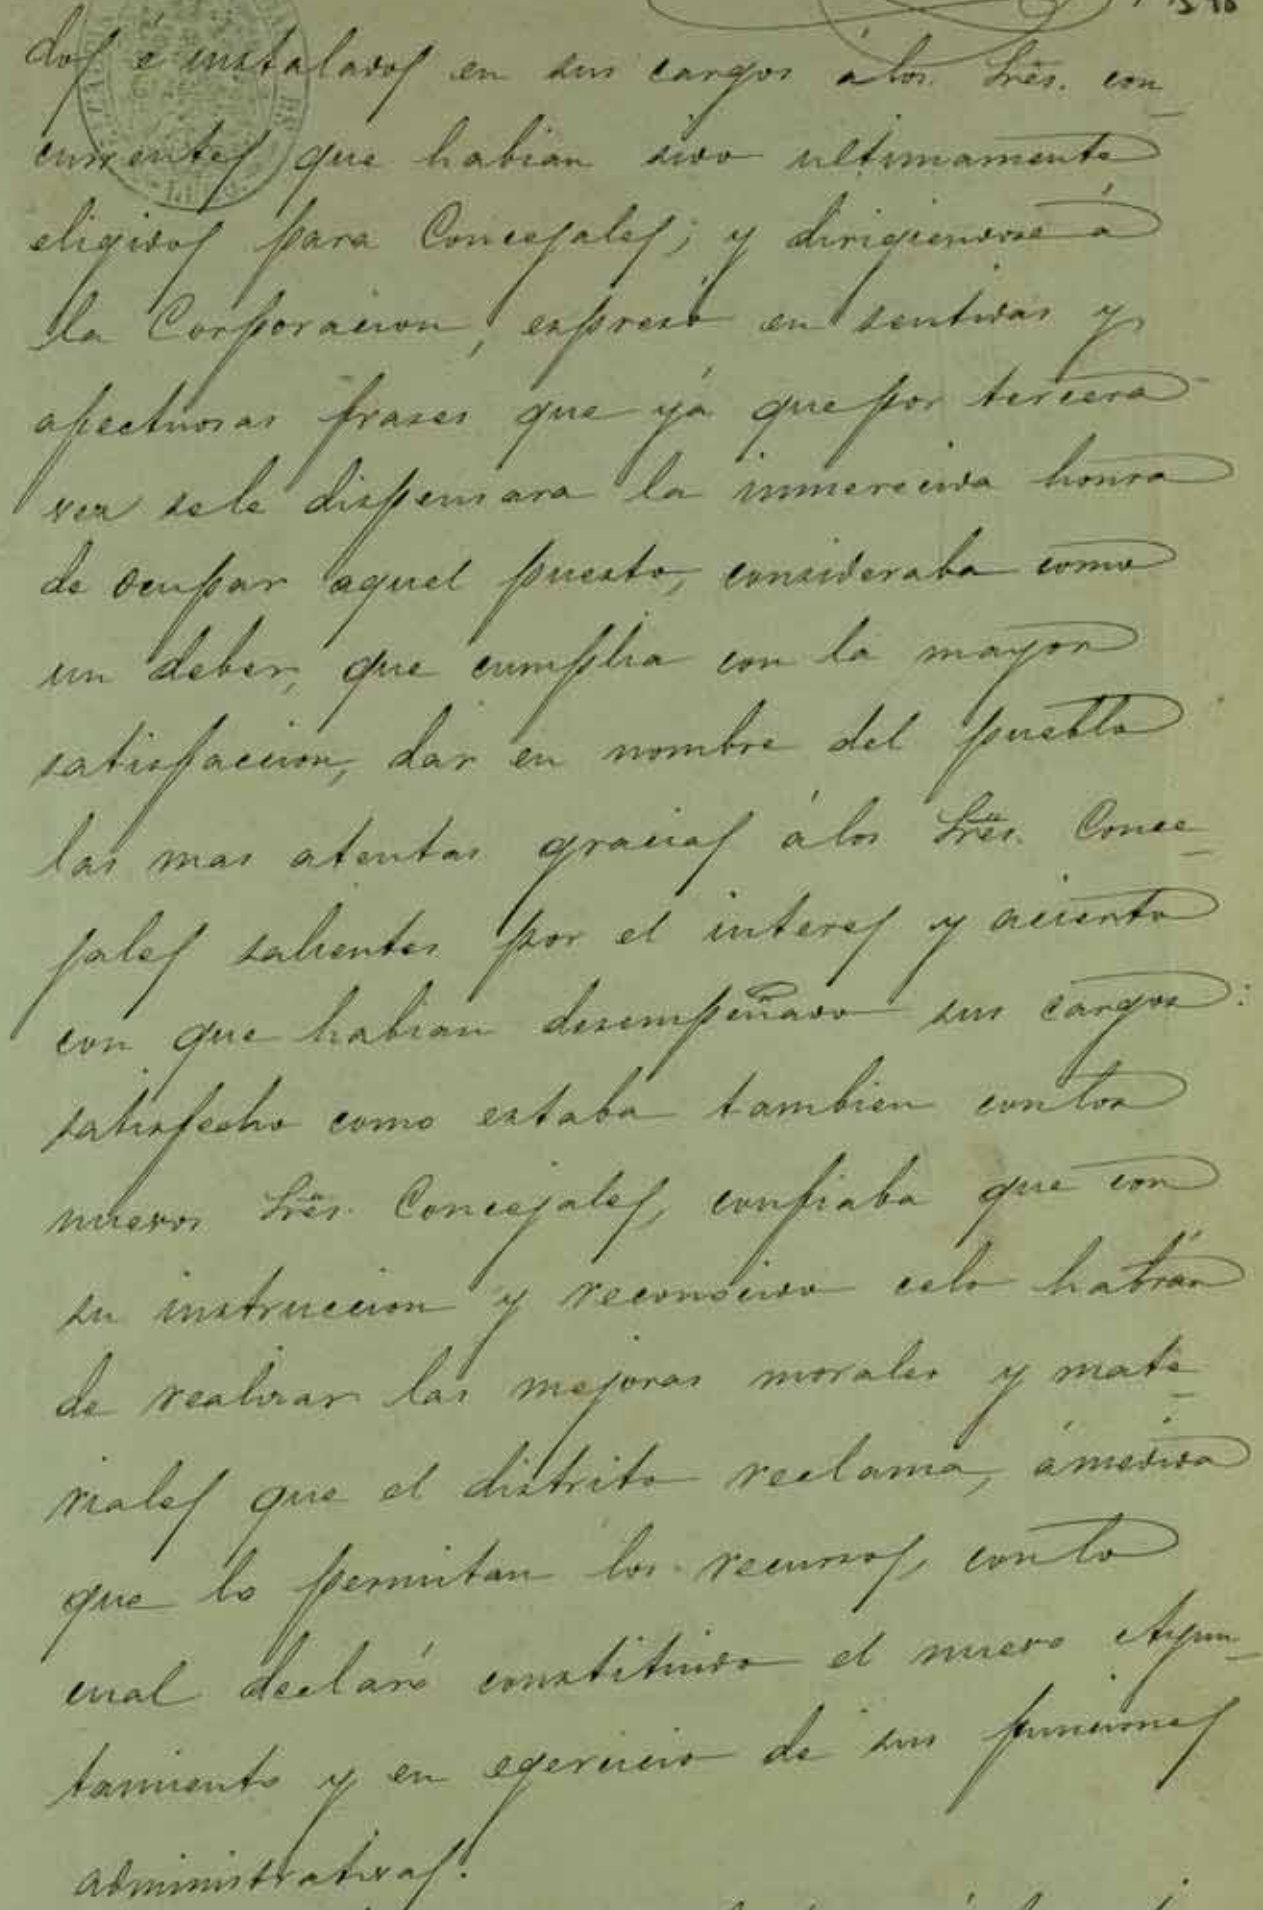 dos é instalados en sus cargos á los Sres. con
currentes que habian sido ultimamente
eligidos para Concejales; y dirigiendose á
la Corporacion, espresó en sentidas y
afectuosas frases que yá que por tercera
vez sele dispensara la inmerecida honra
de ocupar aquel puesto, consideraba como
un deber, que cumplia con la mayor
satisfaccion, dar en nombre del pueblo
las mas atentas gracias álos Sres. Conce
jales salientes por el interes y acierto
con que habian desempeñado sus cargos:
satisfecho como estaba tambien con los
nuevos Sres. Concejales, confiaba que con
su instruccion y reconocido celo habrán
de realizar las mejoras morales y mate
riales que el distrito reclama, ámedida
que lo permitan los recursos, con lo
cual declaró constituido el nuevo Ayun
tamiento y en egercicio de sus funciones
administrativas.